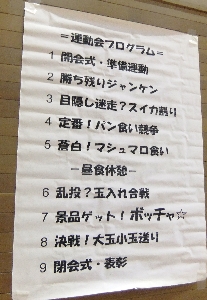 ＝運動会プログラム＝
1 開会式・準備運動
2 勝ち残りジャンケン
3 目隠し迷走？スイカ割り
4 定番！パン食い競争
5 蒼白！マシュマロ食い
－昼食休憩－
6 乱投？玉入れ合戦
7 景品ゲット！ボッチャ☆
8 決戦！大玉小玉送り
9 閉会式・表彰